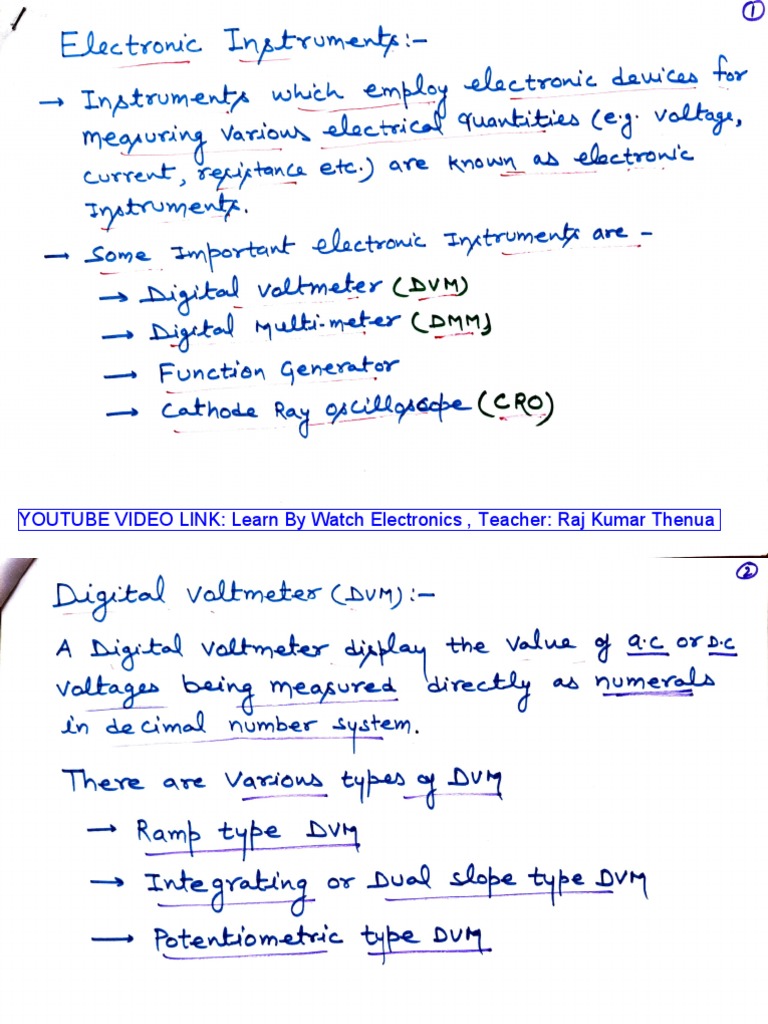 ①
Electronic Instruments:-
→ Instruments which employ electronic devices for
measuring various electrical quantities (e.g. voltage,
current, resistance etc.) are known as electronic
Instruments.
→ Some Important electronic Instruments are -
→ Digital voltmeter (DVM)
→ Digital Multi-meter (DMM)
→ Function Generator
→ Cathode Ray oscilloscope (CRO)
YOUTUBE VIDEO LINK: Learn By Watch Electronics , Teacher: Raj Kumar Thenua
②
Digital voltmeter (DVM):-
A Digital voltmeter display the value of a.c or D.C
voltages being measured directly as numerals
in decimal number system.
There are various types of DVM
→ Ramp type DVM
→ Integrating or Dual slope type DVM
→ Potentiometric type DVM